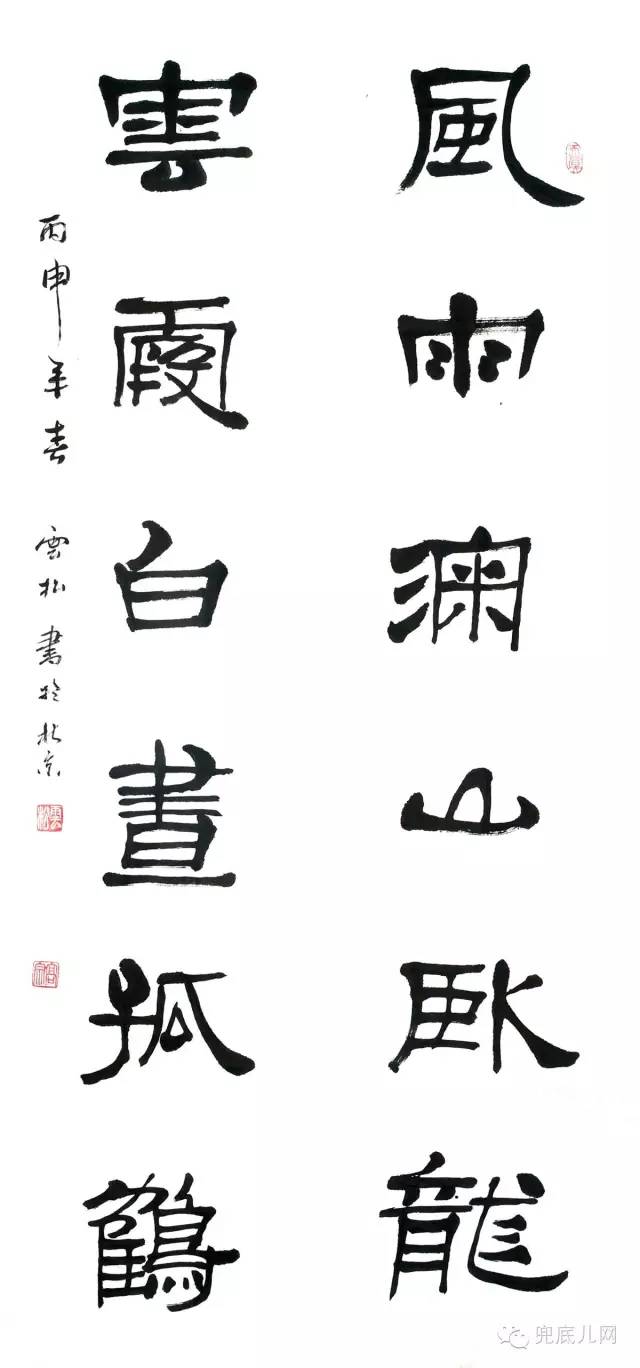 風雨深山卧龍
雲霞白晝孤鶴
丙申年春 雲松書於北京
雲松
兜底儿网